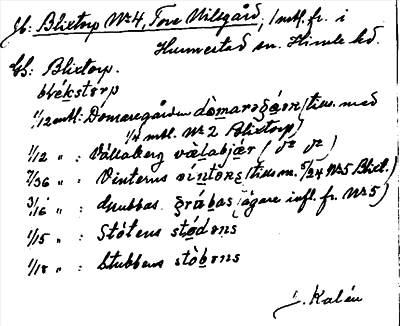 Jb: Blixtorp Nr 4, Tore Nilsgård, 1 mtl. fr. i
Hunnestad sn. Himle hd.
Gs: Blixtorp.
blékstorp
1/12 mtl: Domaregården dòmargå̀rn (tills. med
1/4 mtl. Nr 2 Blixtorp)
1/12 " : Vallaberg vàlabjær ( " " )
7/36 " : Vinterns vìntörs (tills m. 5/24 Nr 5 Blixt.)
3/16 " : Grubbas grábas (ägare infl. fr. Nr 5)
1/15 " : Stötens stødens
1/18 " : Stubbens stòbens
J. Kalén